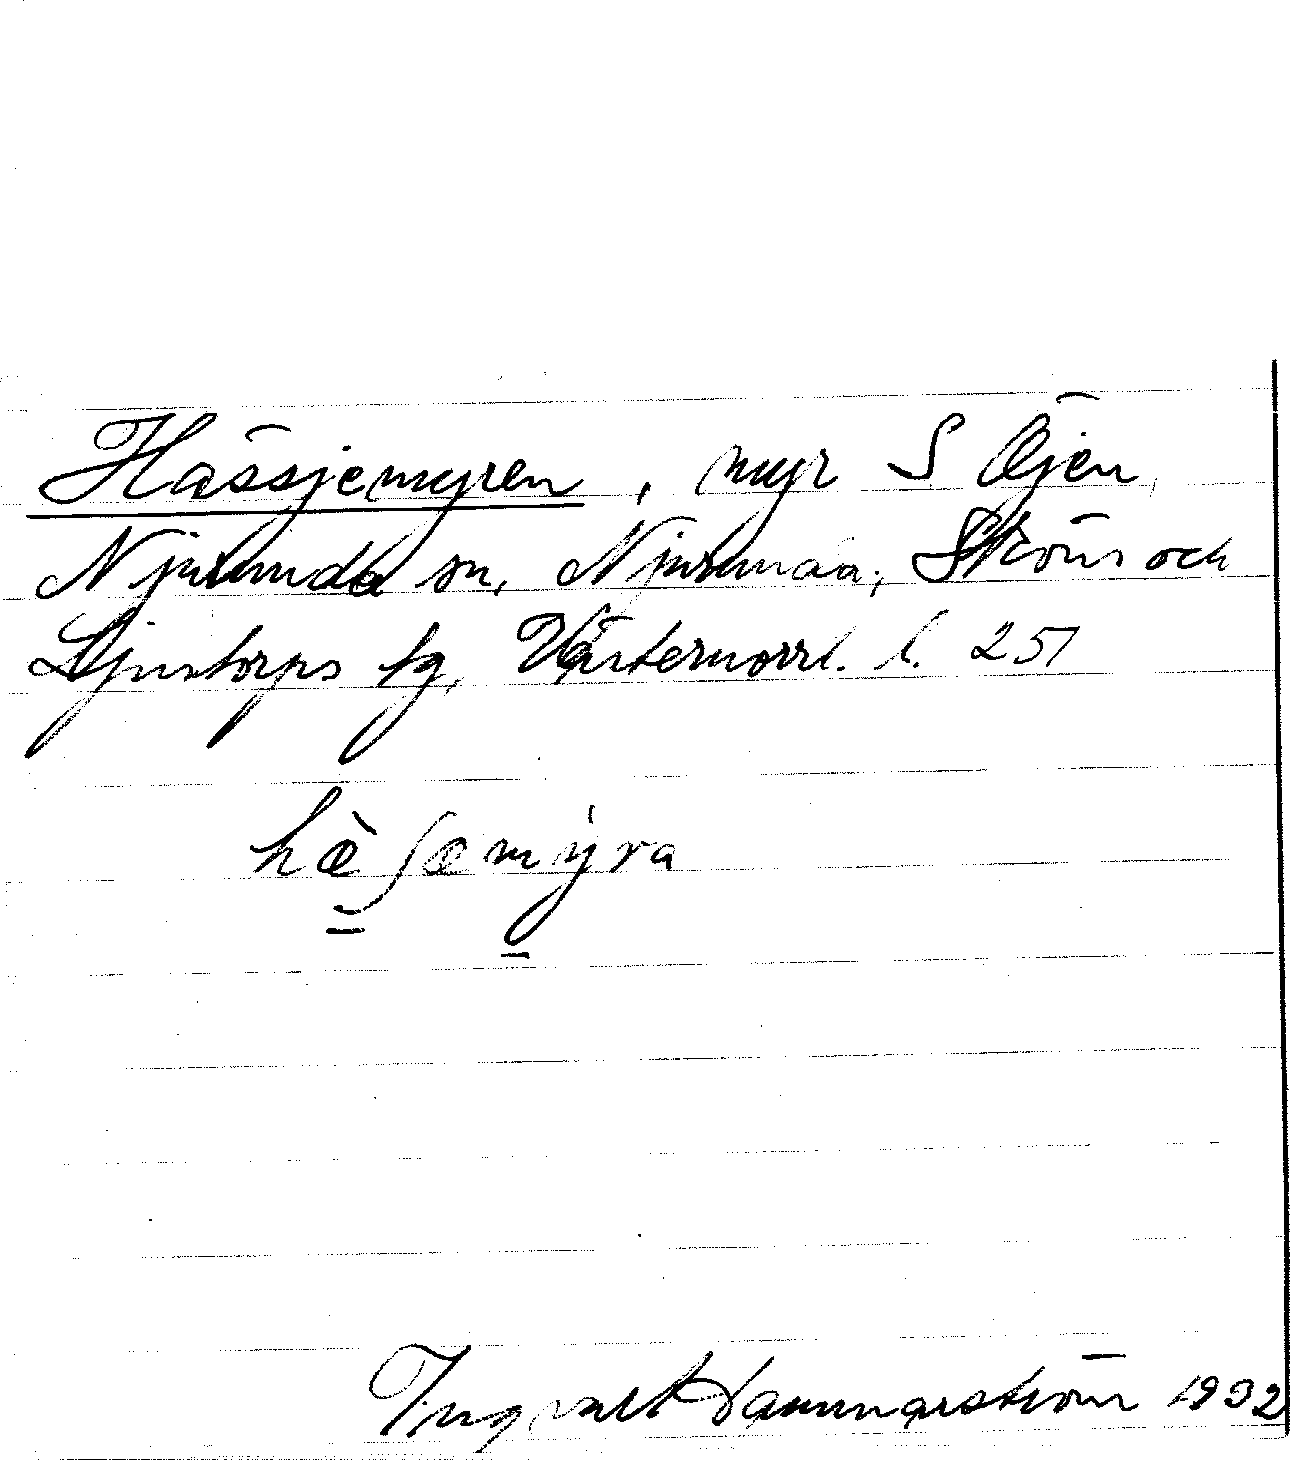 Hässjemyren, myr S Öjen,
Njurunda sn, Njurunda, Sköns och
Ljustorps tg, Västernorrl. l. 251
hæ̀ʃæmýra
Ingvalt Hammarström 1932